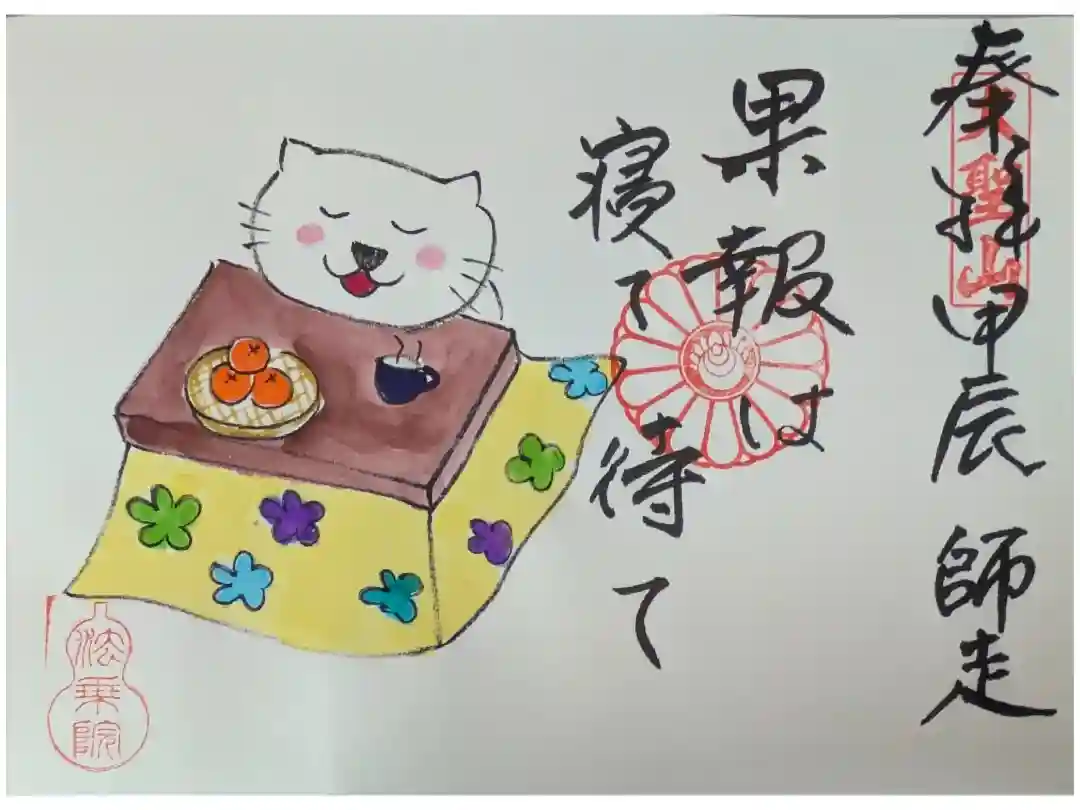 奉拝 甲辰 師走
大聖山
果報は
寝て待て
法乗院